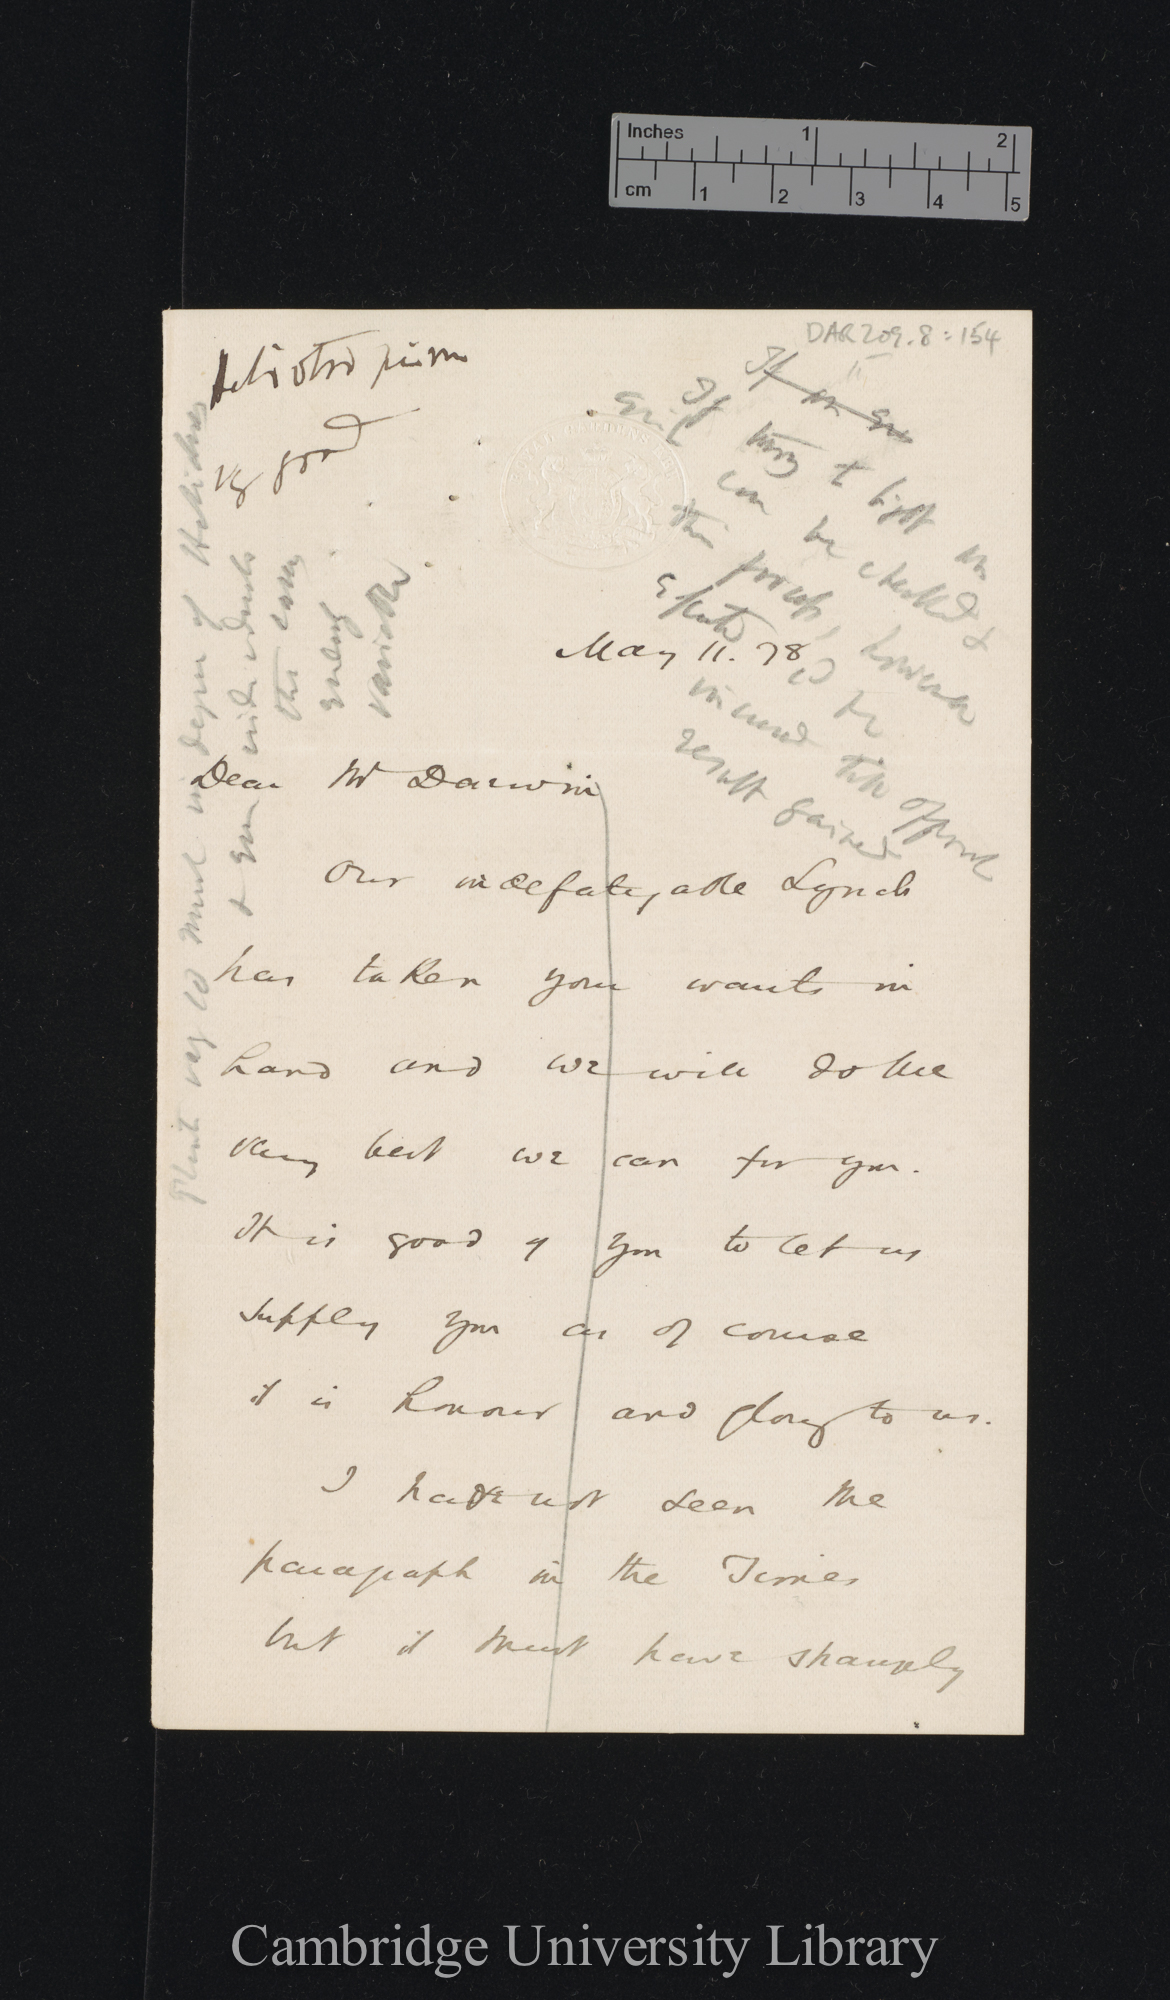 Inches 1 2
cm 1 2 3 4 5
DAR 209.8:154
Heliotropism
V. good
If in
If to light in
can be checked &
this process, however
to be
result gained
Plant very much in degree of
& even individuals
this
variable
ROYAL GARDENS KEW
May 11. 78
Dear Mr Darwin
Our indefatigable Lynch
has taken your wants in
hand and we will do the
very best we can for you.
It is good of you to let us
supply you as of course
it is honour and glory to us.
I have not seen the
paragraph in the Times
but it must have sharply
Cambridge University Library